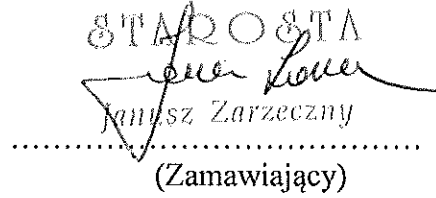 STAROSTA
Janusz Zarzeczny
........................................
(Zamawiający)